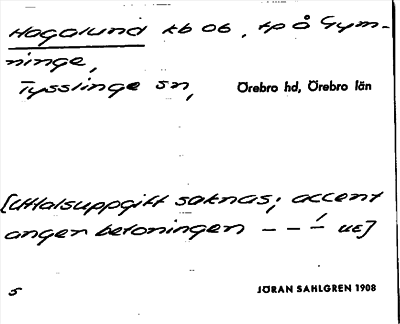 Hagalund kb 06, tp å Gym-
ninge,
Tysslinge sn, Örebro hd, Örebro län
[Uttalsuppgift saknas; accent
anger betoningen – – –́ UE]
5 JÖRAN SAHLGREN 1908